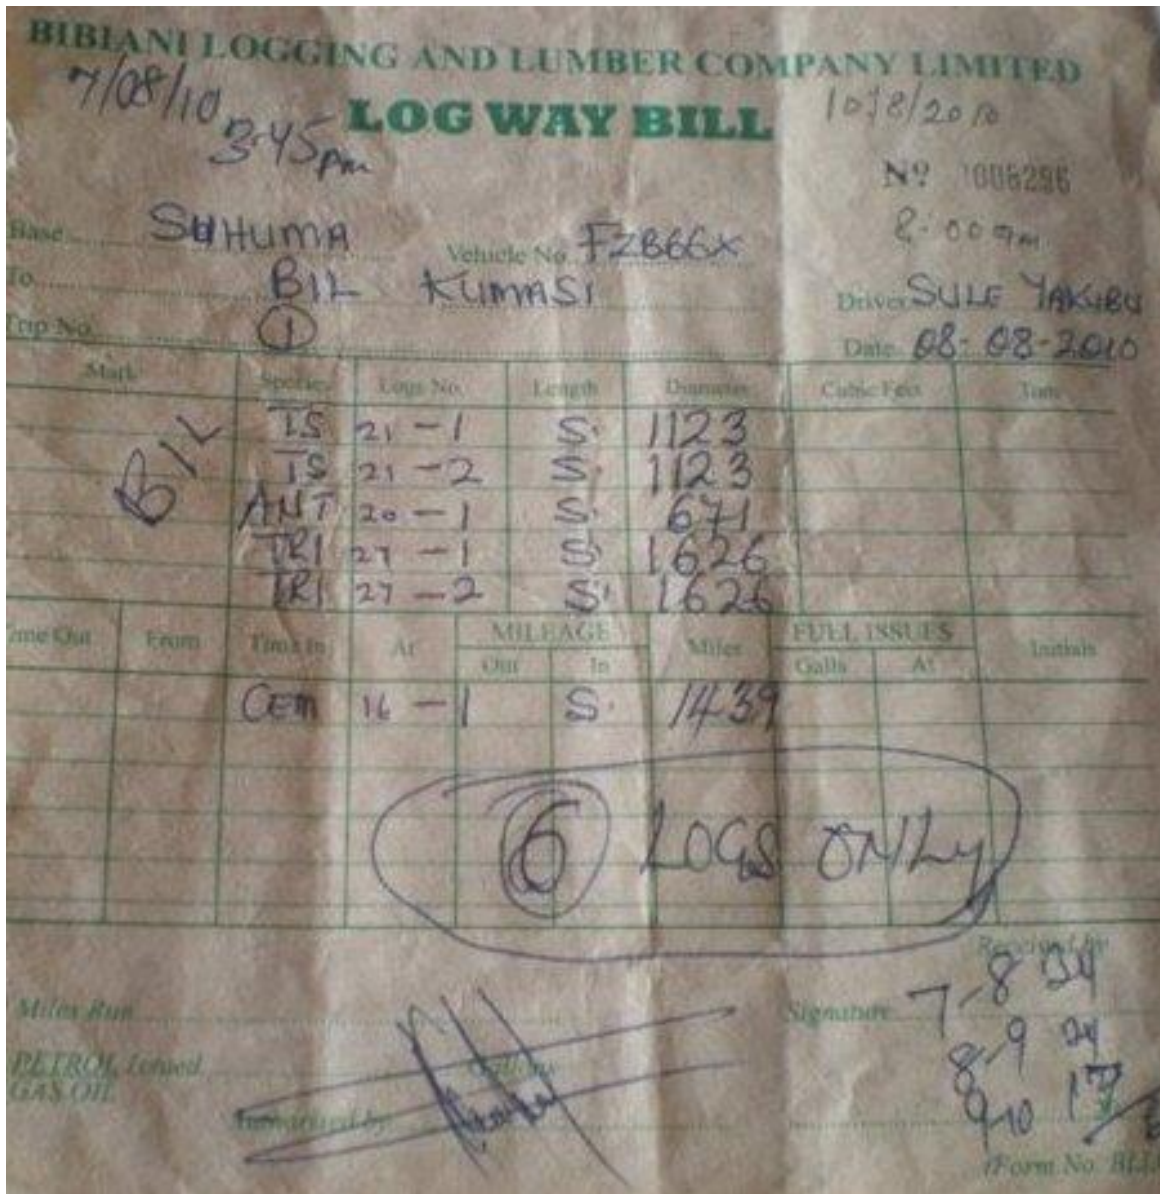 BIBIANI LOGGING AND LUMBER COMPANY LIMITED
7/08/10 LOG WAY BILL 10/8/2010
3.45pm Nº 1006296
8.00am
Base SUHUMA Vehicle No. FZB66X
To BIL KUMASI Driver SULE YAKUBU
Trip No. 1 Date 08-08-2010
Mark Species Logs No. Length Diameter Cubic Feet Tons
BIL
TS 21-1 S. 1123
TS 21-2 S. 1123
ANT 20-1 S. 671
TRI 27-1 S. 1626
TRI 27-2 S. 1626
Time Out From Time In At MILEAGE Miles FUEL ISSUES Initials
Out In Galls At
CEM 16-1 S. 1439
6 LOGS ONLY
Received by
Miles Run Signature 7-8 24
PETROL Issued Gallons 8-9 24
GAS OIL
9-10 17
(Form No.